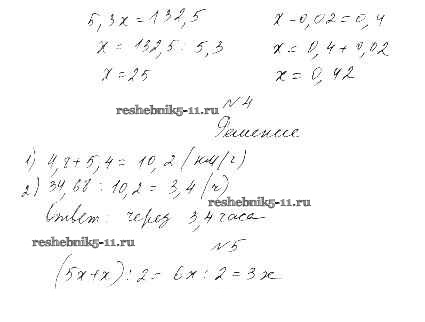 5,3x = 132,5
x = 132,5 : 5,3
x = 25
x - 0,02 = 0,4
x = 0,4 + 0,02
x = 0,42
reshebnik5-11.ru
N4
Решение
1) 4,8 + 5,4 = 10,2 (км/ч)
2) 34,68 : 10,2 = 3,4 (ч)
reshebnik5-11.ru
Ответ: через 3,4 часа
reshebnik5-11.ru
N5
(5x+x) : 2 = 6x : 2 = 3x